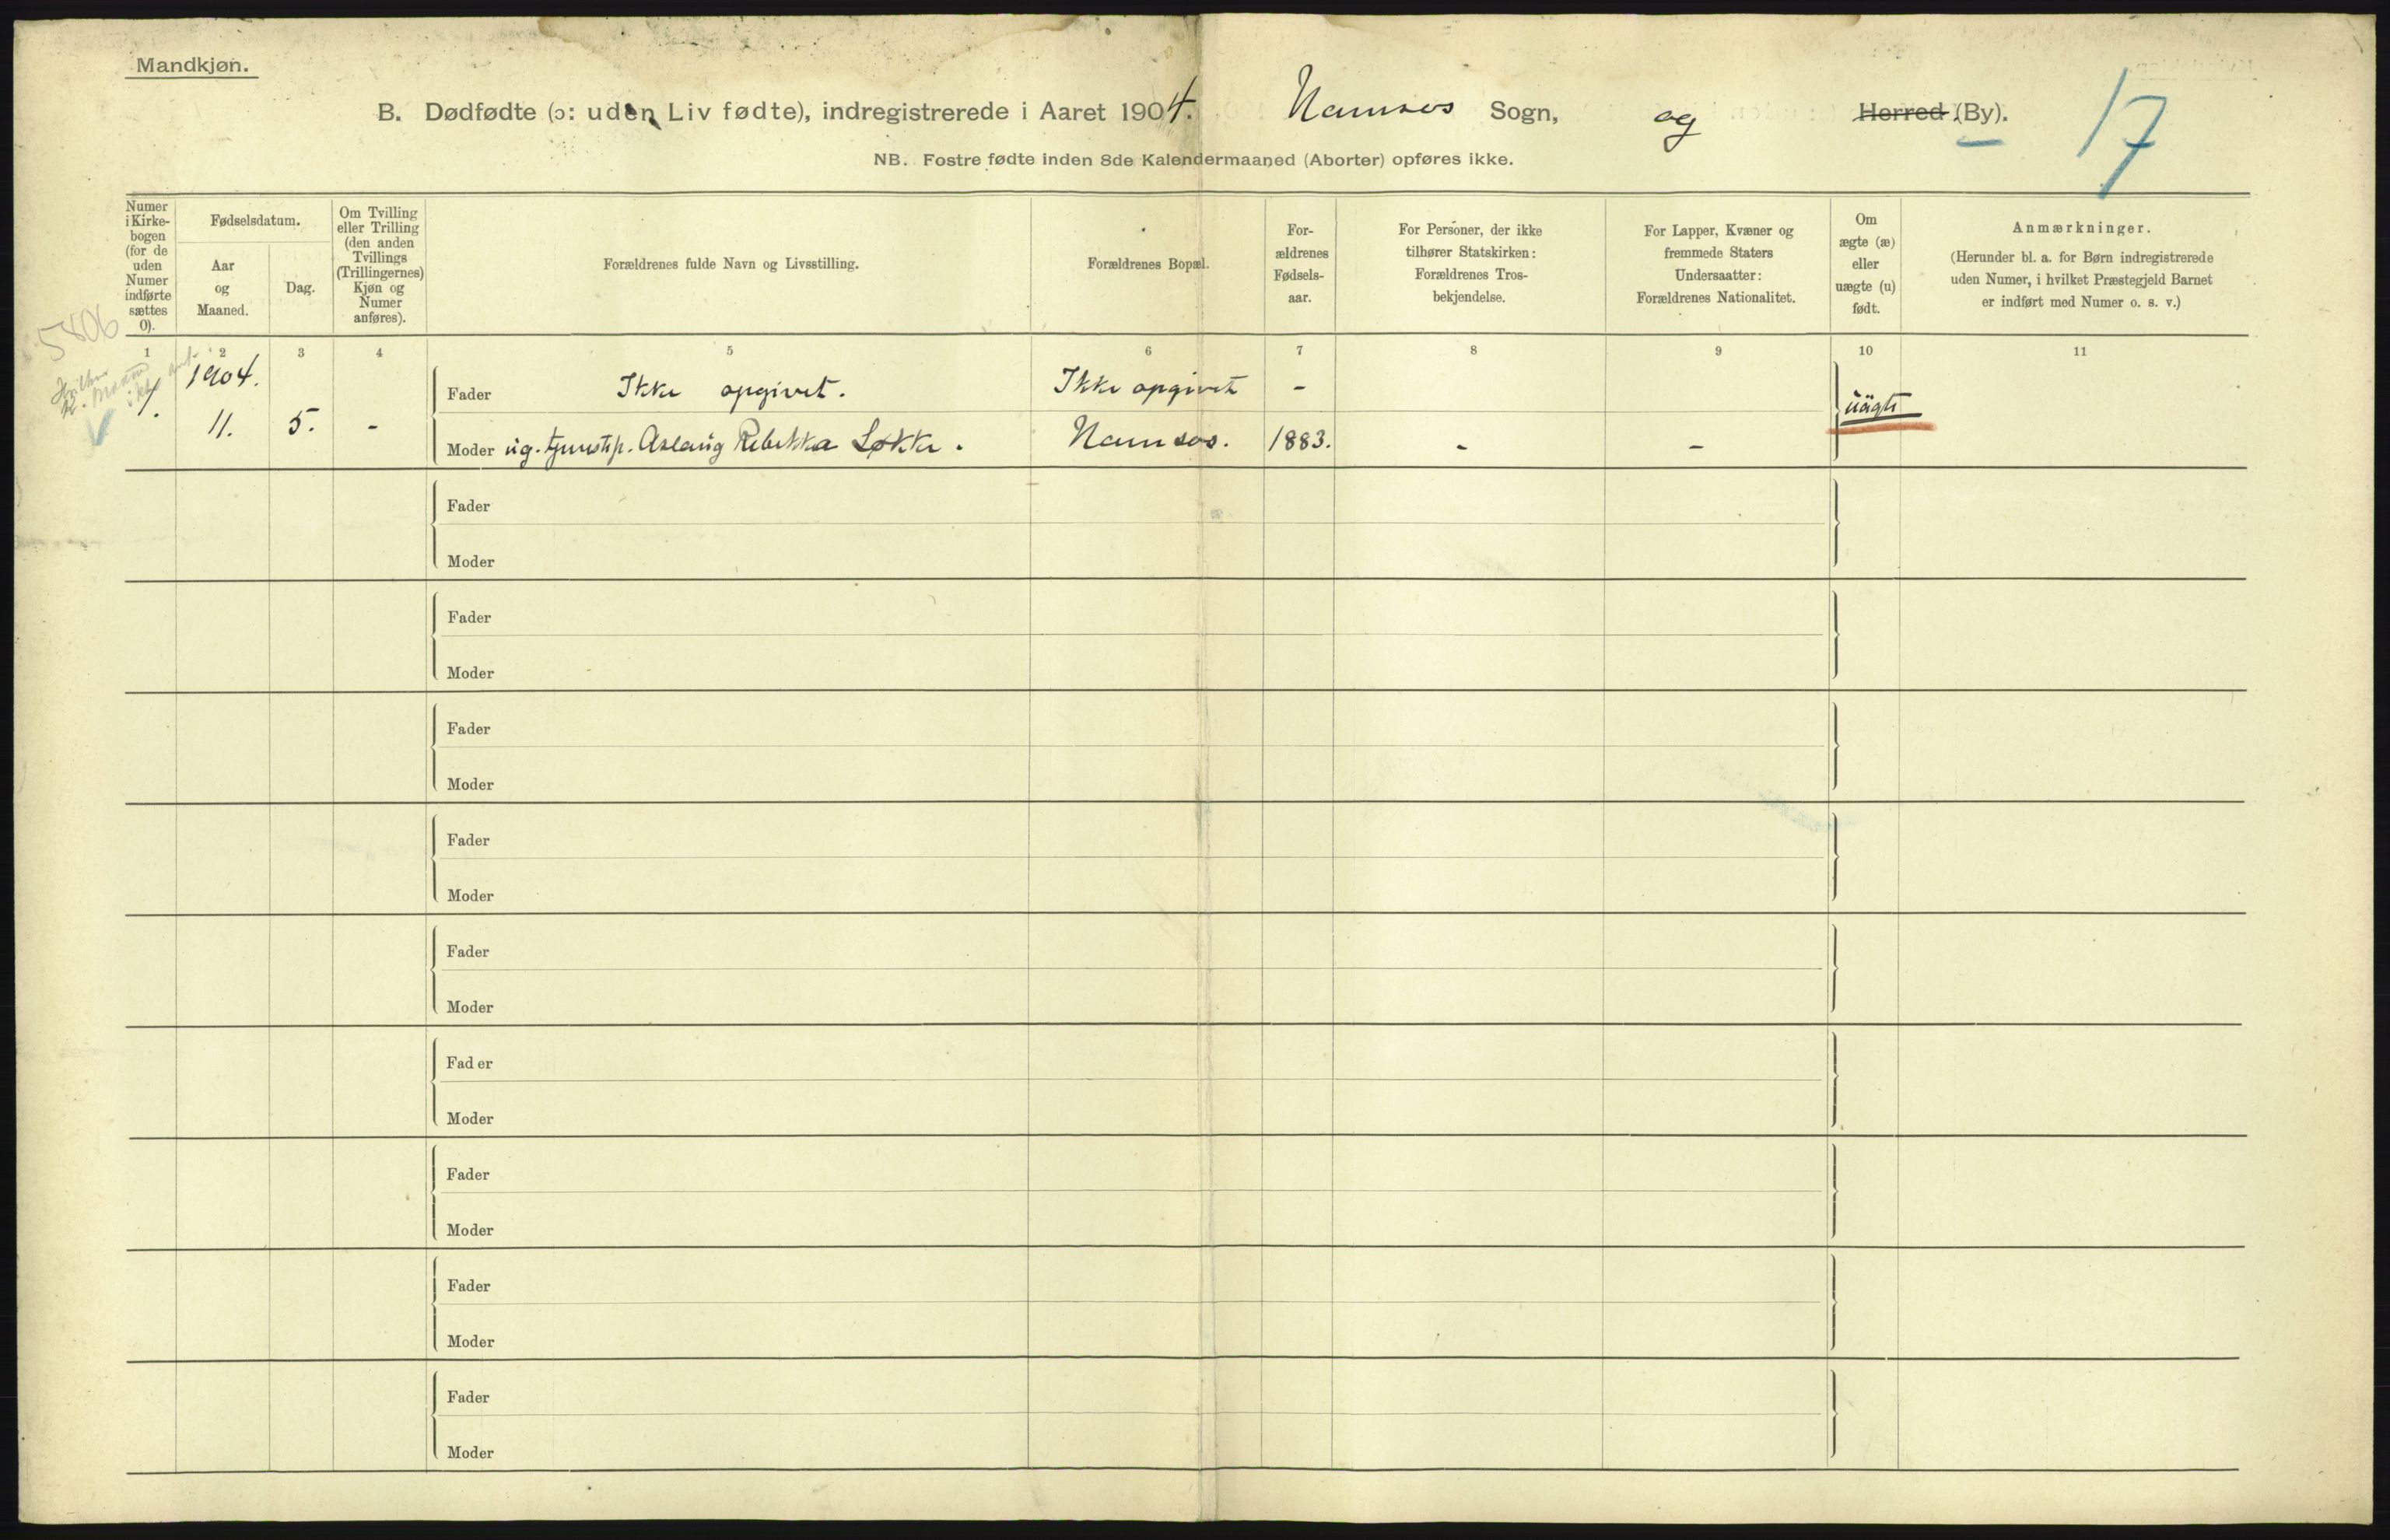 Mandkjøn.
B. Dødfødte (ɔ: uden Liv fødte), indregistrerede i Aaret 1904. Namsos Sogn, og Herred (By).
17
NB. Fostre fødte inden 8de Kalendermaaned (Aborter) opføres ikke.
Numer
i Kirke-
bogen
(for de
uden
Numer
indførte
sættes
0).
Fødselsdatum.
Aar
og
Maaned.
Dag.
Om Tvilling
eller Trilling
(den anden
Tvillings
(Trillingernes)
Kjøn og
Numer
anføres).
Forældrenes fulde Navn og Livsstilling.
Forældrenes Bopæl.
For-
ældrenes
Fødsels-
aar.
For Personer, der ikke
tilhører Statskirken:
Forældrenes Tros-
bekjendelse.
For Lapper, Kvæner og
fremmede Staters
Undersaatter:
Forældrenes Nationalitet.
Om
ægte (æ)
eller
uægte (u)
født.
Anmærkninger.
(Herunder bl. a. for Børn indregistrerede
uden Numer, i hvilket Præstegjeld Barnet
er indført med Numer o. s. v.)
5806
1 2 3 4 5 6 7 8 9 10 11
1. 1904. Fader Ikke opgivet. Ikke opgivet -
uägte
11. 5. - Moder ug. tjenestp. Aslaug Rebekka Løkke. Namsos. 1883. - -
Fader
Moder
Fader
Moder
Fader
Moder
Fader
Moder
Fader
Moder
Fader
Moder
Fader
Moder
Fader
Moder
Fader
Moder